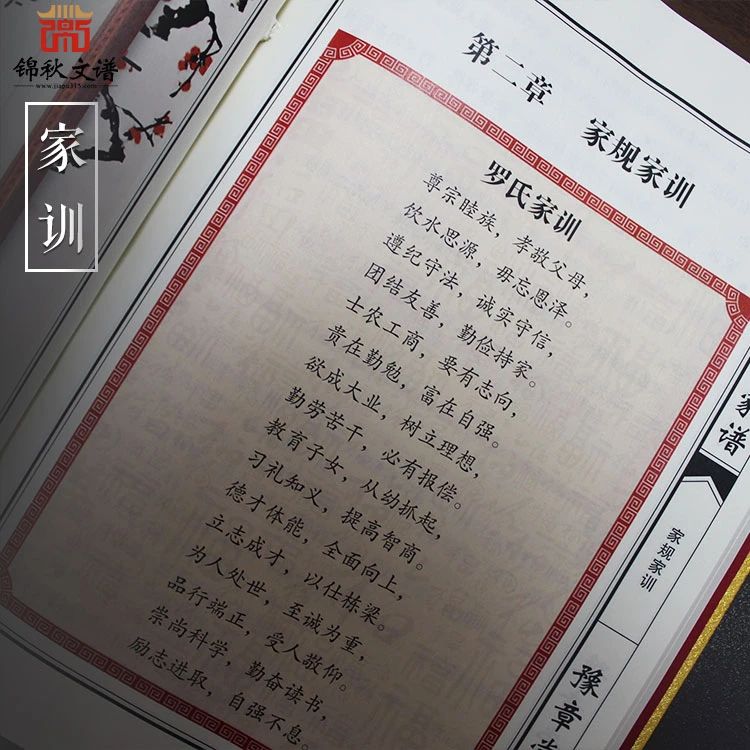 锦秋文谱
www.jiapu315.com
家训
第二章 家规家训
罗氏家训
尊宗睦族，孝敬父母，
饮水思源，毋忘恩泽。
遵纪守法，诚实守信，
团结友善，勤俭持家。
士农工商，要有志向，
贵在勤勉，富在自强。
欲成大业，树立理想，
勤劳苦干，必有报偿。
教育子女，从幼抓起，
习礼知义，提高智商。
德才体能，全面向上，
立志成才，以仕栋梁。
为人处世，至诚为重，
品行端正，受人敬仰。
崇尚科学，勤奋读书，
励志进取，自强不息。
家谱
家规家训
豫章